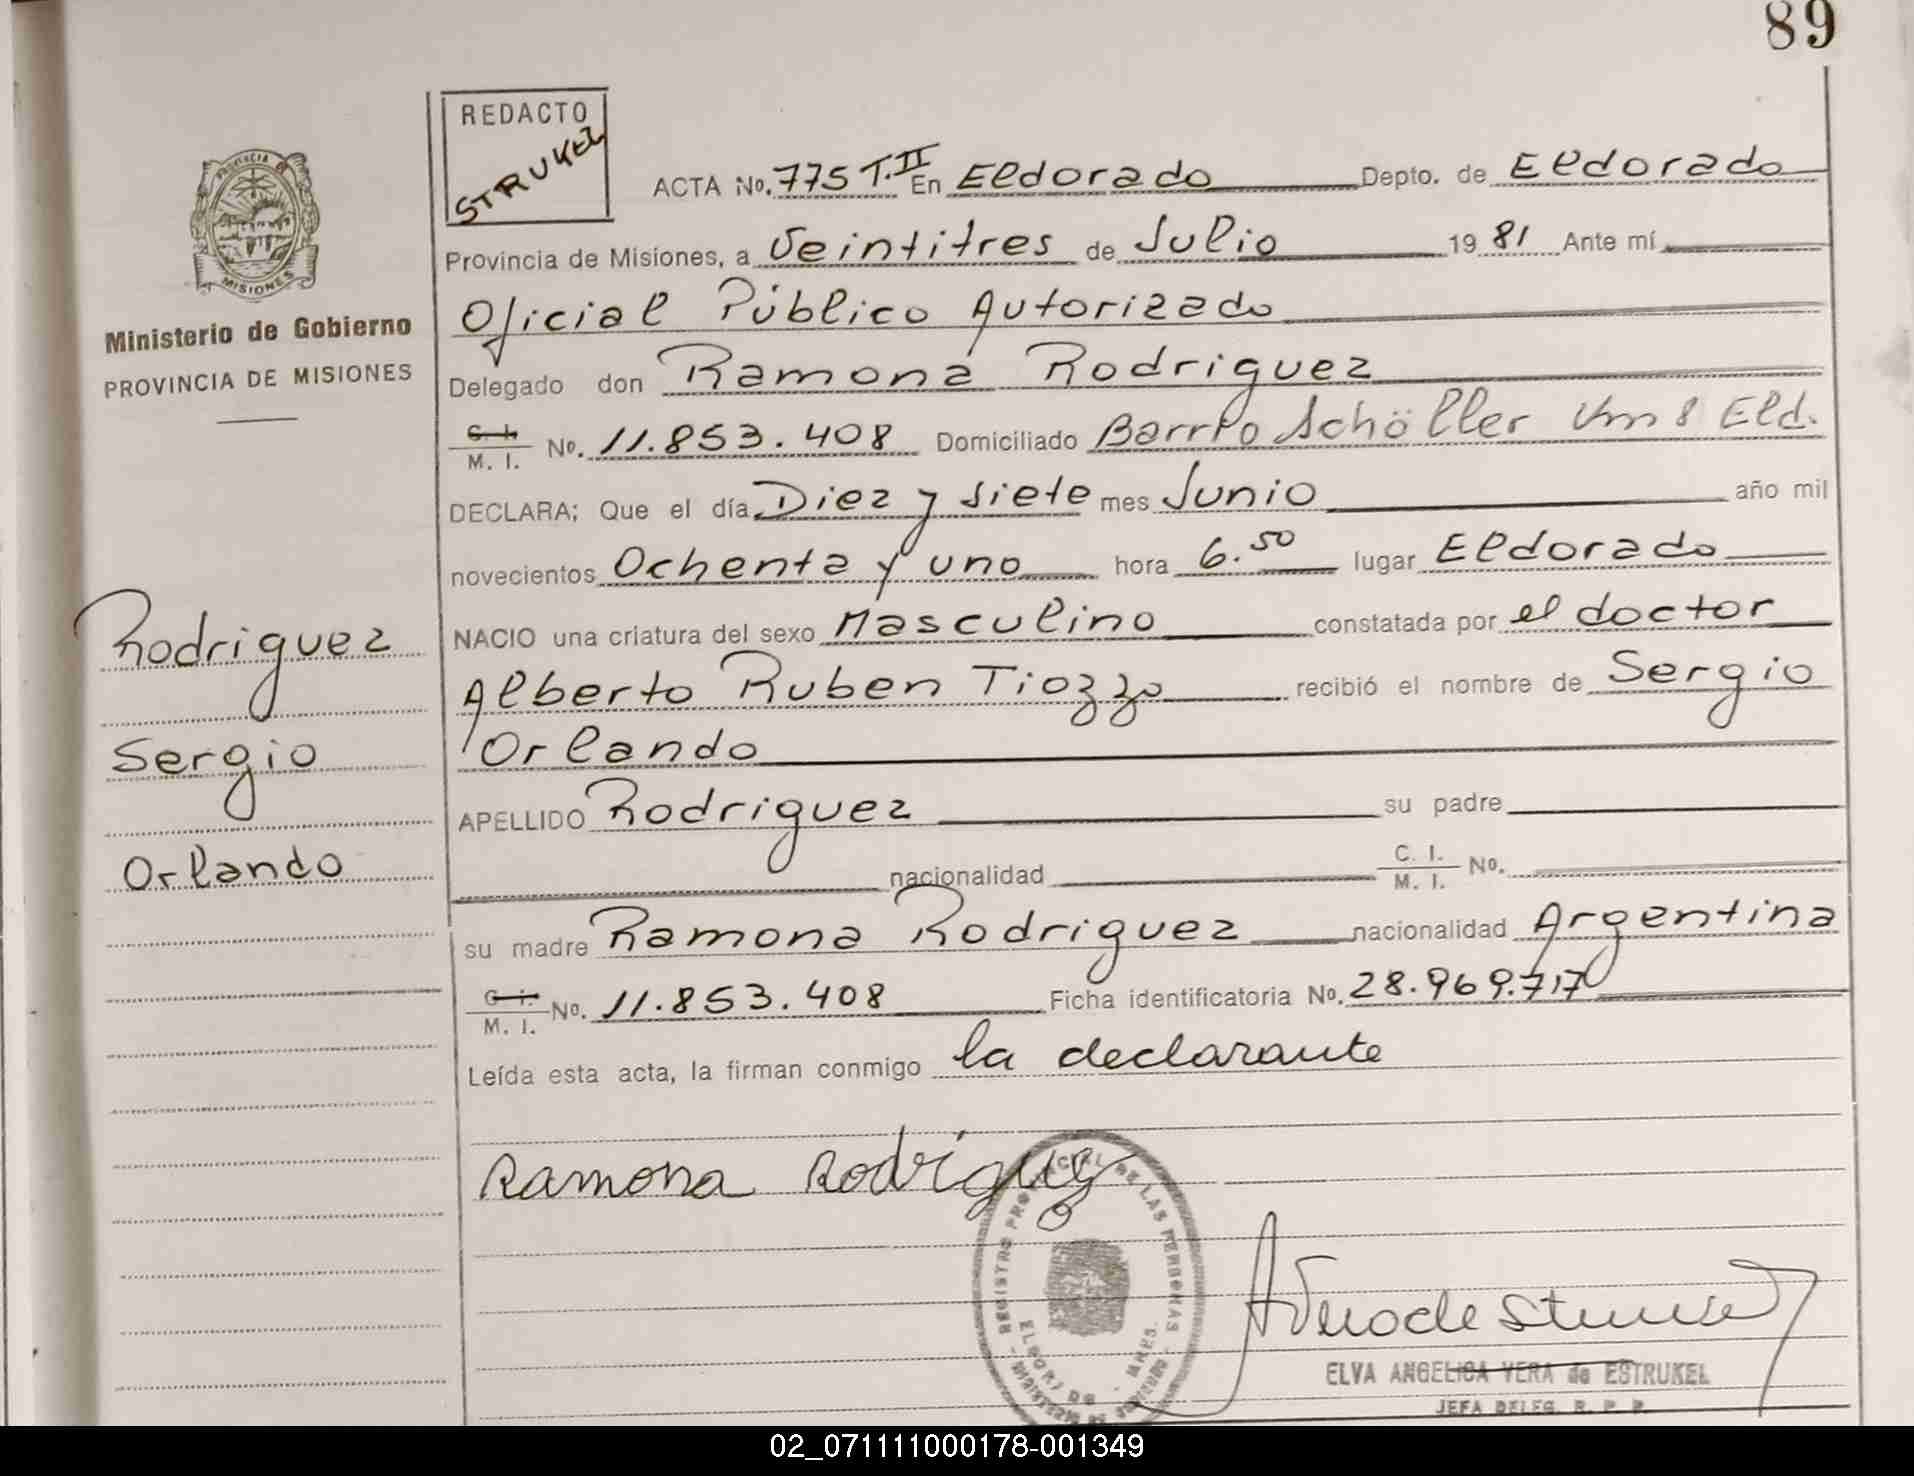 89
REDACTO
STRUKEL
PROVINCIA DE
MISIONES
Ministerio de Gobierno
PROVINCIA DE MISIONES
Rodriguez
Sergio
Orlando
ACTA No. 775 T.II En Eldorado Depto. de Eldorado
Provincia de Misiones, a Veintitres de Julio 19 81 Ante mí
Oficial Público Autorizado
Delegado don Ramona Rodriguez
C. I. M. I. No. 11.853.408 Domiciliado Barrio Schöller Km 8 Eld.
DECLARA; Que el día Diez y siete mes Junio año mil
novecientos Ochenta y uno hora 6.50 lugar Eldorado
NACIO una criatura del sexo Masculino constatada por el doctor
Alberto Ruben Tiozzo recibió el nombre de Sergio
Orlando
APELLIDO Rodriguez su padre
nacionalidad C. I. M. I. No.
su madre Ramona Rodriguez nacionalidad Argentina
C. I. M. I. No. 11.853.408 Ficha identificatoria No. 28.969.717
Leída esta acta, la firman conmigo la declarante
Ramona Rodríguez
REGISTRO PROVINCIAL DE LAS PERSONAS
ELDORADO - MNES.
MINISTERIO DE GOBIERNO
ELVA ANGELICA VERA de ESTRUKEL
JEFA DELEG. R. P. P.
02_071111000178-001349